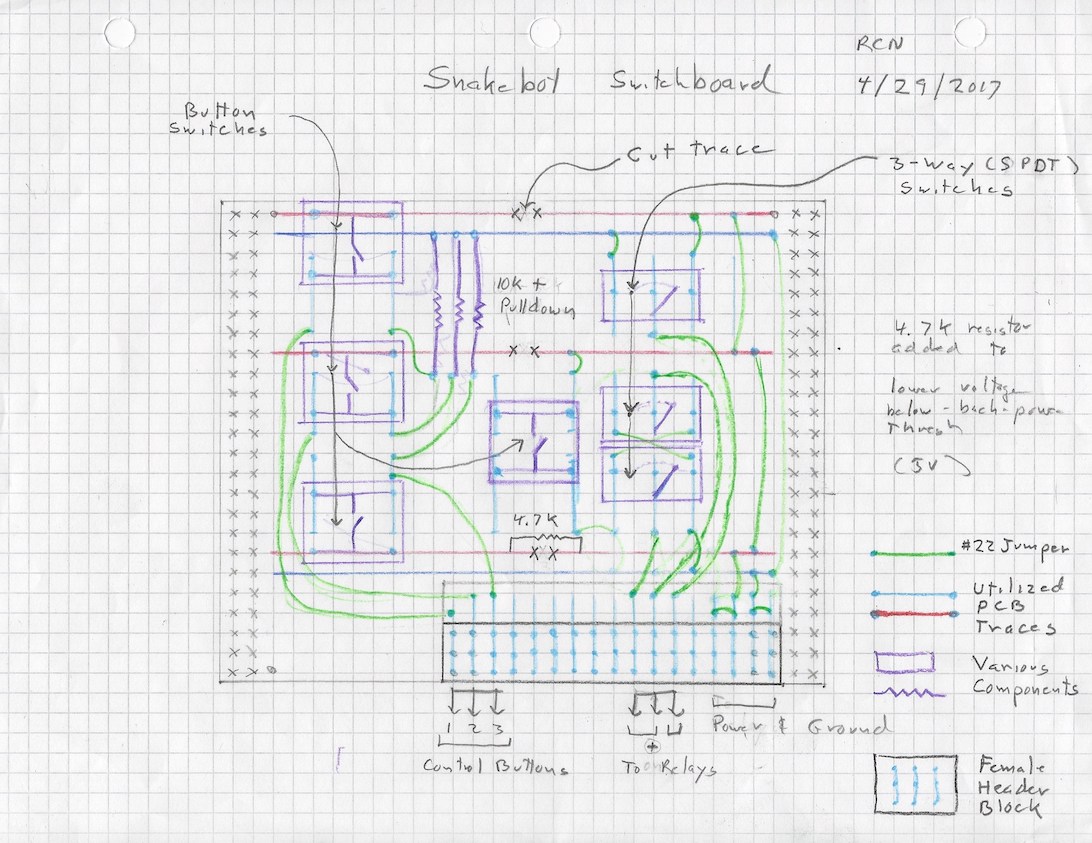 RCN
4/29/2017
Snakebot Switchboard
Button
Switches
Cut trace
3-Way (SPDT)
Switches
10K +
Pulldown
4.7K resistor
added to
lower voltage
below-back-power
Thresh
(5V)
4.7K
#22 Jumper
Utilized
PCB
Traces
Various
Components
1 2 3
Control Buttons
+
To Relays
Power & Ground
Female
Header
Block